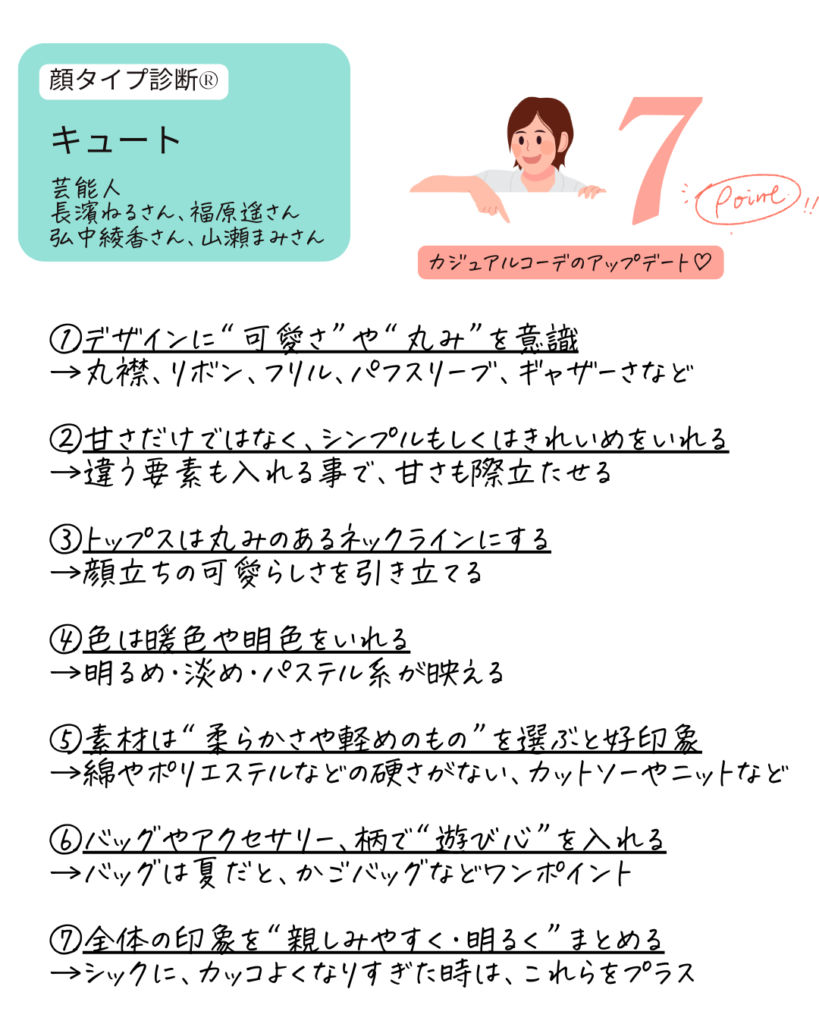 顔タイプ診断®
キュート
芸能人
長濱ねるさん、福原遥さん
弘中綾香さん、山瀬まみさん
7
Point
!!
カジュアルコーデのアップデート♡
①デザインに“可愛さ”や“丸み”を意識
→丸襟、リボン、フリル、パフスリーブ、ギャザーさなど
②甘さだけではなく、シンプルもしくはきれいめをいれる
→違う要素も入れる事で、甘さも際立たせる
③トップスは丸みのあるネックラインにする
→顔立ちの可愛らしさを引き立てる
④色は暖色や明色をいれる
→明るめ・淡め・パステル系が映える
⑤素材は“柔らかさや軽めのもの”を選ぶと好印象
→綿やポリエステルなどの硬さがない、カットソーやニットなど
⑥バッグやアクセサリー、柄で“遊び心”を入れる
→バッグは夏だと、かごバッグなどワンポイント
⑦全体の印象を“親しみやすく・明るく”まとめる
→シックに、カッコよくなりすぎた時は、これらをプラス